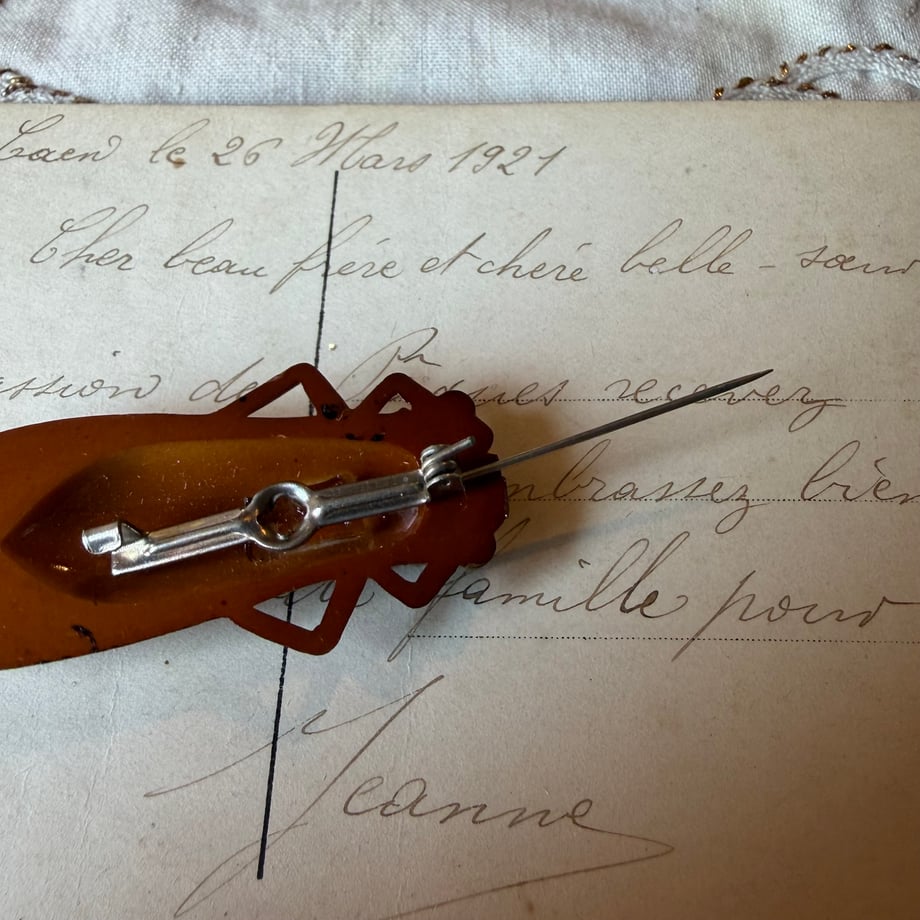 Caen le 26 Mars 1921
Cher beau frère et chère belle - sœur
ssion de Pâques recevez
mbrassez bien
famille pour
Jeanne